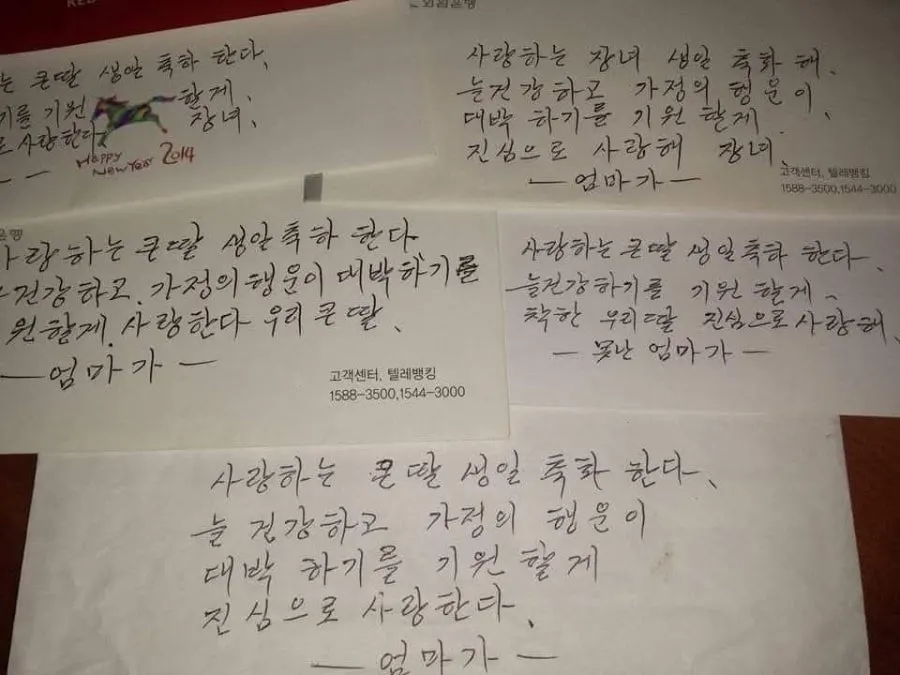 RED
는 큰딸 생일 축하 한다.
기를 기원 할게.
로 사랑한다 장녀.
Happy
New Year 2014
외환은행
사랑하는 장녀 생일 축화 해.
늘건강하고 가정의 행운이
대박 하기를 기원 할게
진심으로 사랑해 장녀.
—엄마가—
고객센터, 텔레뱅킹
1588-3500,1544-3000
은행
사랑하는 큰딸 생일축하 한다.
건강하고. 가정의행운이 대박하기를
원할게. 사랑한다 우리큰딸.
—엄마가—
고객센터, 텔레뱅킹
1588-3500,1544-3000
사랑하는 큰딸 생일축하 한다.
늘건강하기를 기원 할게.
착한 우리딸 진심으로 사랑해.
— 못난 엄마가 —
사랑하는 큰딸 생일 축화 한다.
늘 건강하고 가정의 행운이
대박 하기를 기원 할게
진심으로 사랑한다.
— 엄마가 —